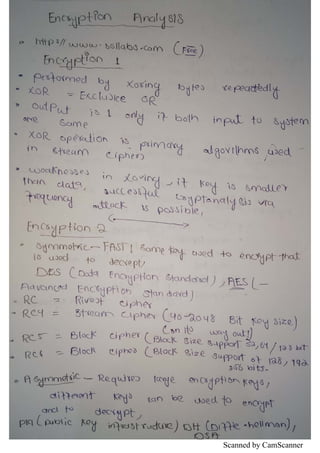 Encryption Analysis
http:// www. sollabs.com (Free)
Encryption 1
Performed by Xoring bytes repeatedly
XOR = Exclusive OR
output is 1 only if both input to system
are same
XOR operation is primary algorithms used
in stream ciphers
weaknesses in Xoring - if key is smaller
than data, successful Cryptanalysis via
frequency attack is possible,
Encryption 2
Symmetric - FAST; Same key used to encrypt that
is used to decrypt
DES (Data Encryption Standard), AES (-
Advanced Encryption Standard)
RC = Rivest cipher
RC4 = Stream Cipher (40-2048 Bit Key size)
RC5 = Block Cipher (Block Size support 32, 64 / 128 bit
RC6 = Block Cipher (Block Size support of 128, 192
256 bits.
Asymmetric - Requires encryption keys,
different keys can be used to encrypt
and to decrypt,
(public key infrastructure) DH (Diffie-hellman),
DSA
Scanned by CamScanner